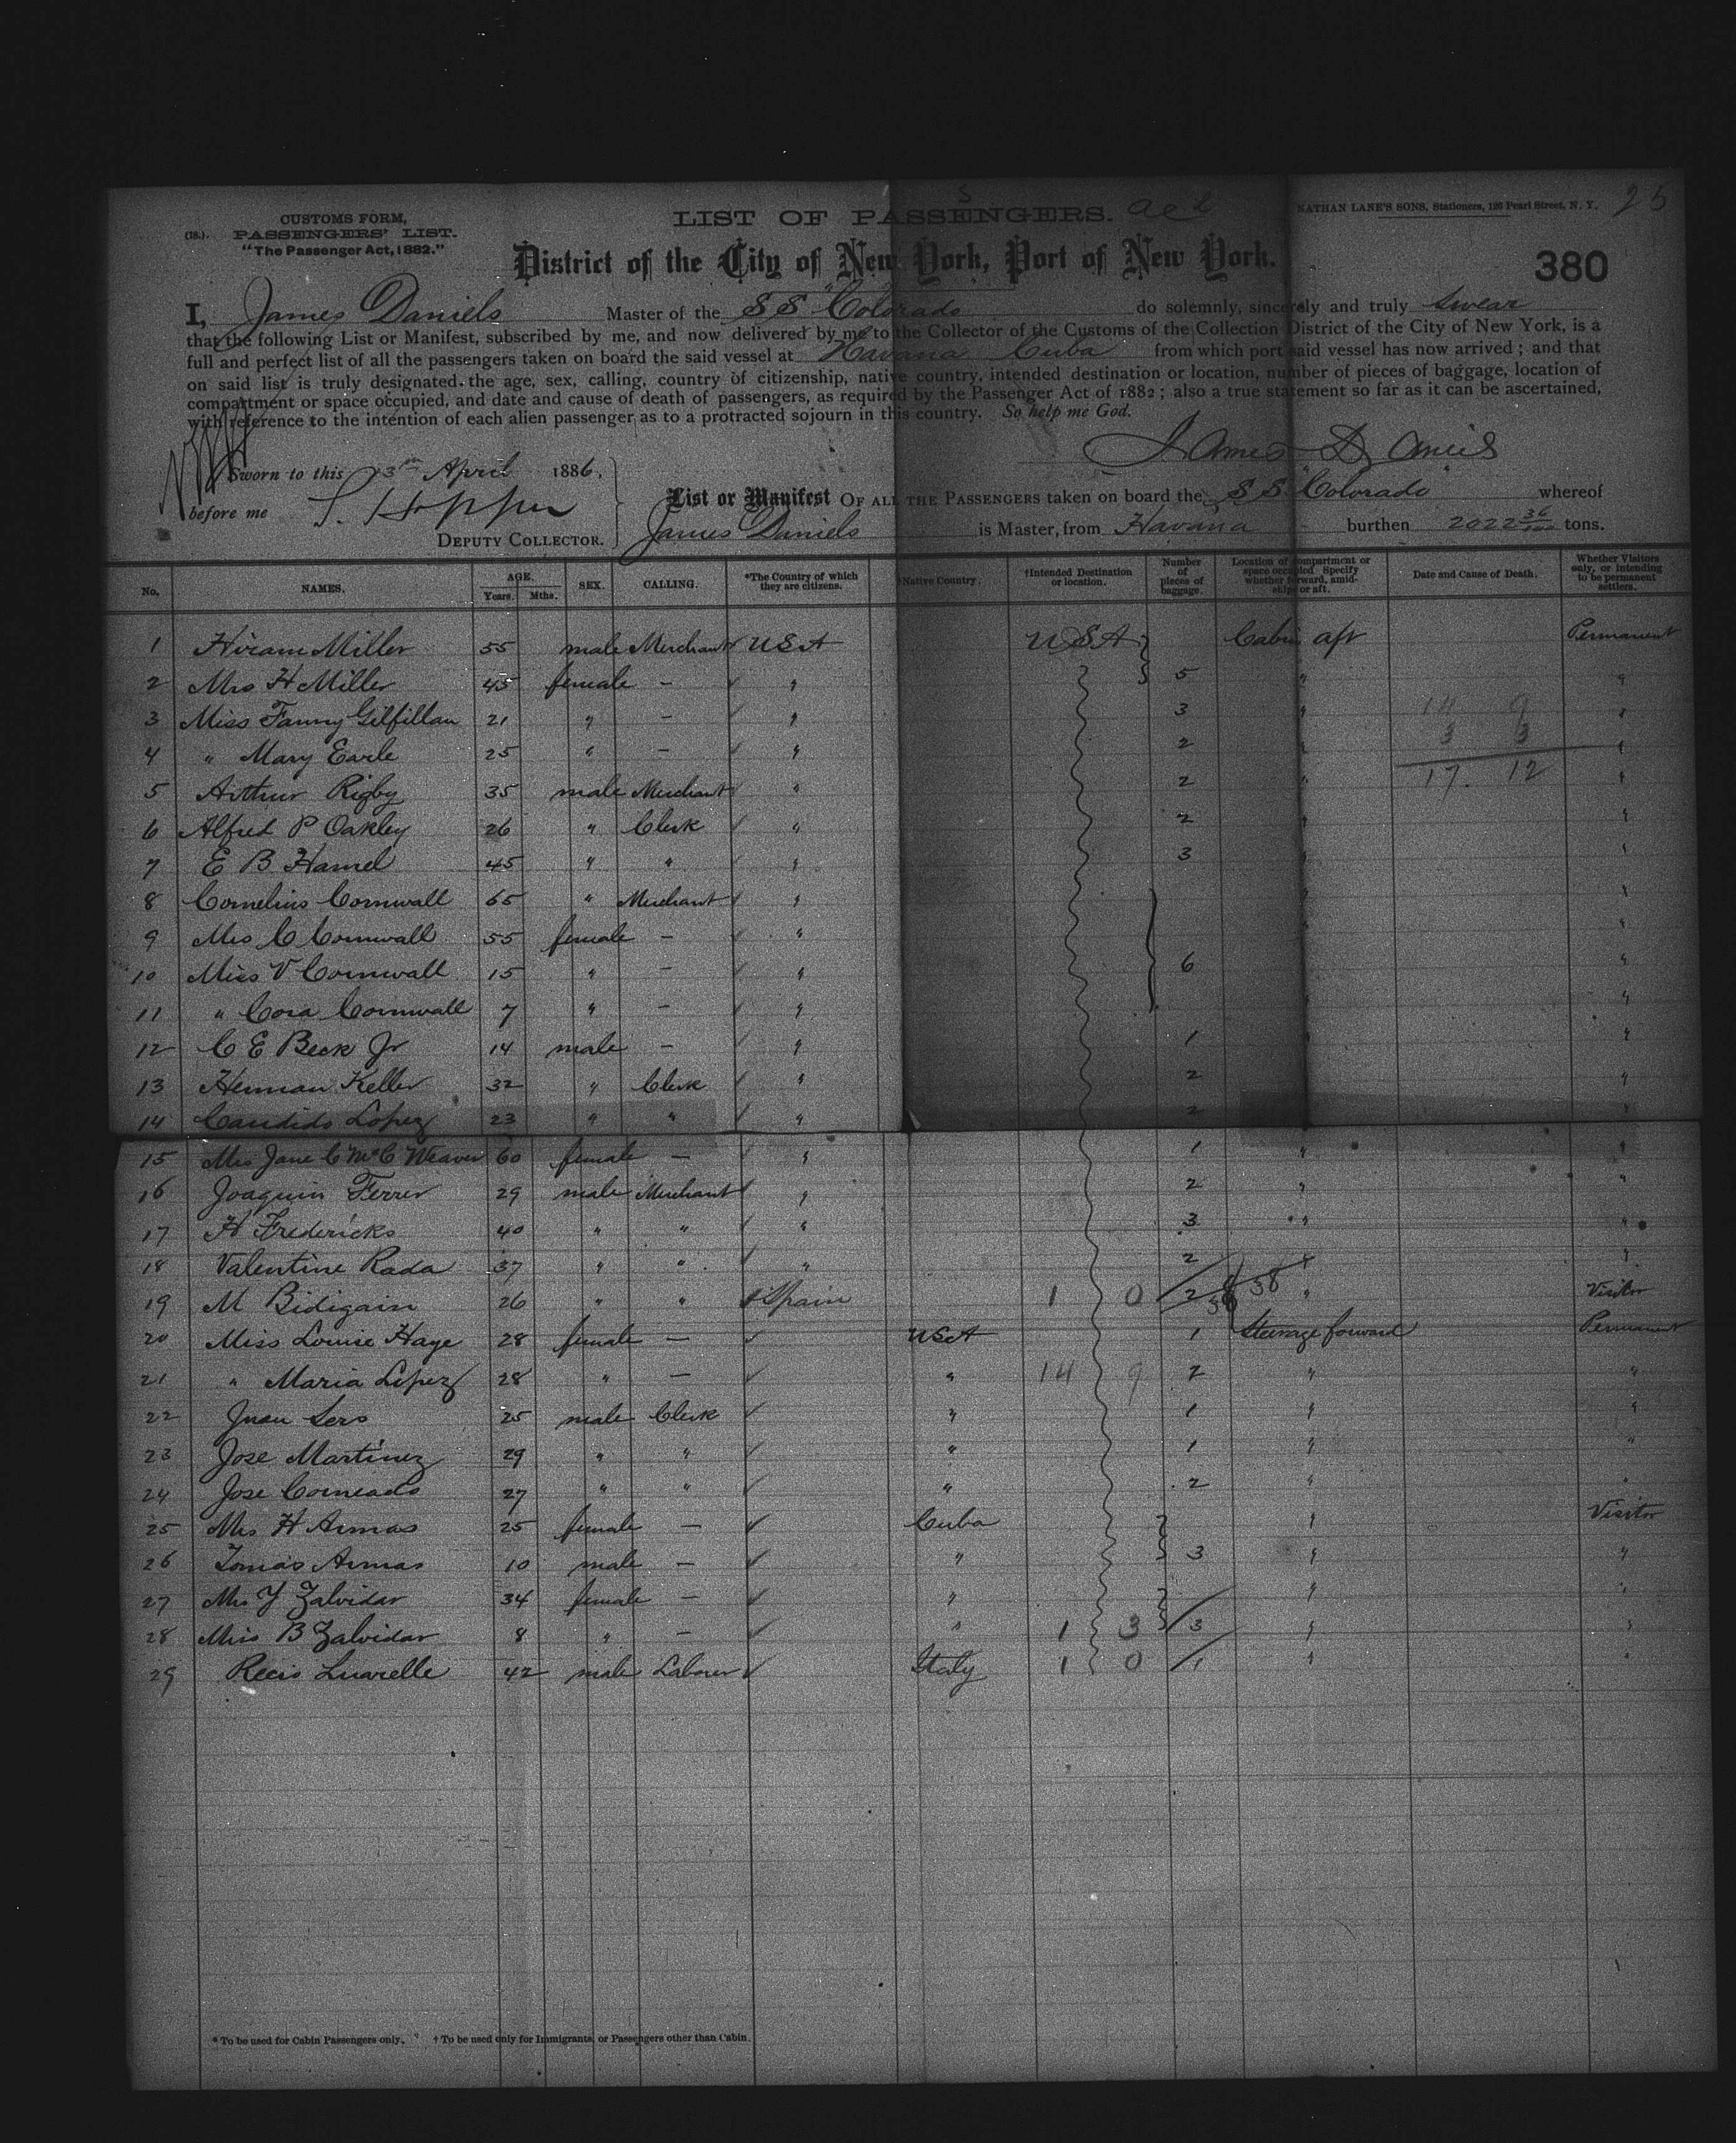 25
LIST OF PASSENGERS.
CUSTOMS FORM,
(18.). PASSENGERS' LIST.
"The Passenger Act, 1882."
NATHAN LANE'S SONS, Stationers, 126 Pearl Street, N. Y.
District of the City of New York, Port of New York.
380
I, James Daniels Master of the SS "Colorado do solemnly, sincerely and truly swear
that the following List or Manifest, subscribed by me, and now delivered by me to the Collector of the Customs of the Collection District of the City of New York, is a
full and perfect list of all the passengers taken on board the said vessel at Havana Cuba from which port said vessel has now arrived ; and that
on said list is truly designated the age, sex, calling, country of citizenship, native country, intended destination or location, number of pieces of baggage, location of
compartment or space occupied, and date and cause of death of passengers, as required by the Passenger Act of 1882 ; also a true statement so far as it can be ascertained,
with reference to the intention of each alien passenger as to a protracted sojourn in this country. So help me God.
James Daniels
Sworn to this 13th April 1886.
before me
DEPUTY COLLECTOR.
List or Manifest OF ALL THE PASSENGERS taken on board the SS "Colorado" whereof
James Daniels is Master, from Havana burthen 2022 36/100 tons.
No. NAMES. AGE. Years. Mths. SEX. CALLING. *The Country of which they are citizens. Native Country. †Intended Destination or location. Number of pieces of baggage. Location of compartment or space occupied. Specify whether forward, amidships or aft. Date and Cause of Death. Whether Visitors only, or intending to be permanent settlers.
1 Hiram Miller 55 male Merchant USA USA Cabin aft Permanent
2 Mrs H Miller 45 female - " 5 " "
3 Miss Fanny Gilfillan 21 " - " 3 " 14 9 "
4 " Mary Earle 25 " - " 2 " 3 3 "
5 Arthur Rigby 35 male Merchant " 2 " 17. 12 "
6 Alfred P Oakley 26 " Clerk " 2 " "
7 E B Hamel 45 " " " 3 " "
8 Cornelius Cornwall 65 " Merchant " " "
9 Mrs C Cornwall 55 female - " " "
10 Miss V Cornwall 15 " - " 6 " "
11 " Cora Cornwall 7 " - " " "
12 C E Beck Jr 14 male - " 1 " "
13 Herman Keller 32 " Clerk " 2 " "
14 Candido Lopez 23 " " " 2 " "
15 Mrs Jane C McC Weaver 60 female - " 1 " "
16 Joaquin Ferrer 29 male Merchant " 2 " "
17 H Fredericks 40 " " " 3 " "
18 Valentine Rada 37 " " " 2 " "
19 M Bidigain 26 " " Spain 1 0 2 38 " Visitor
20 Miss Louise Haye 28 female - USA 1 Steerage forward Permanent
21 " Maria Lopez 28 " - " 14 9 2 " "
22 Juan Sero 25 male Clerk " 1 " "
23 Jose Martinez 29 " " " 1 " "
24 Jose 27 " " " 2 " "
25 Mrs H Armas 25 female - Cuba " Visitor
26 Tomás Armas 10 male - " 3 " "
27 Mrs Y Zalvidar 34 female - " " "
28 Miss B Zalvidar 8 " - " 1 3 3 " "
29 42 male Laborer Italy 1 0 1 " "
* To be used for Cabin Passengers only. † To be used only for Immigrants, or Passengers other than Cabin.